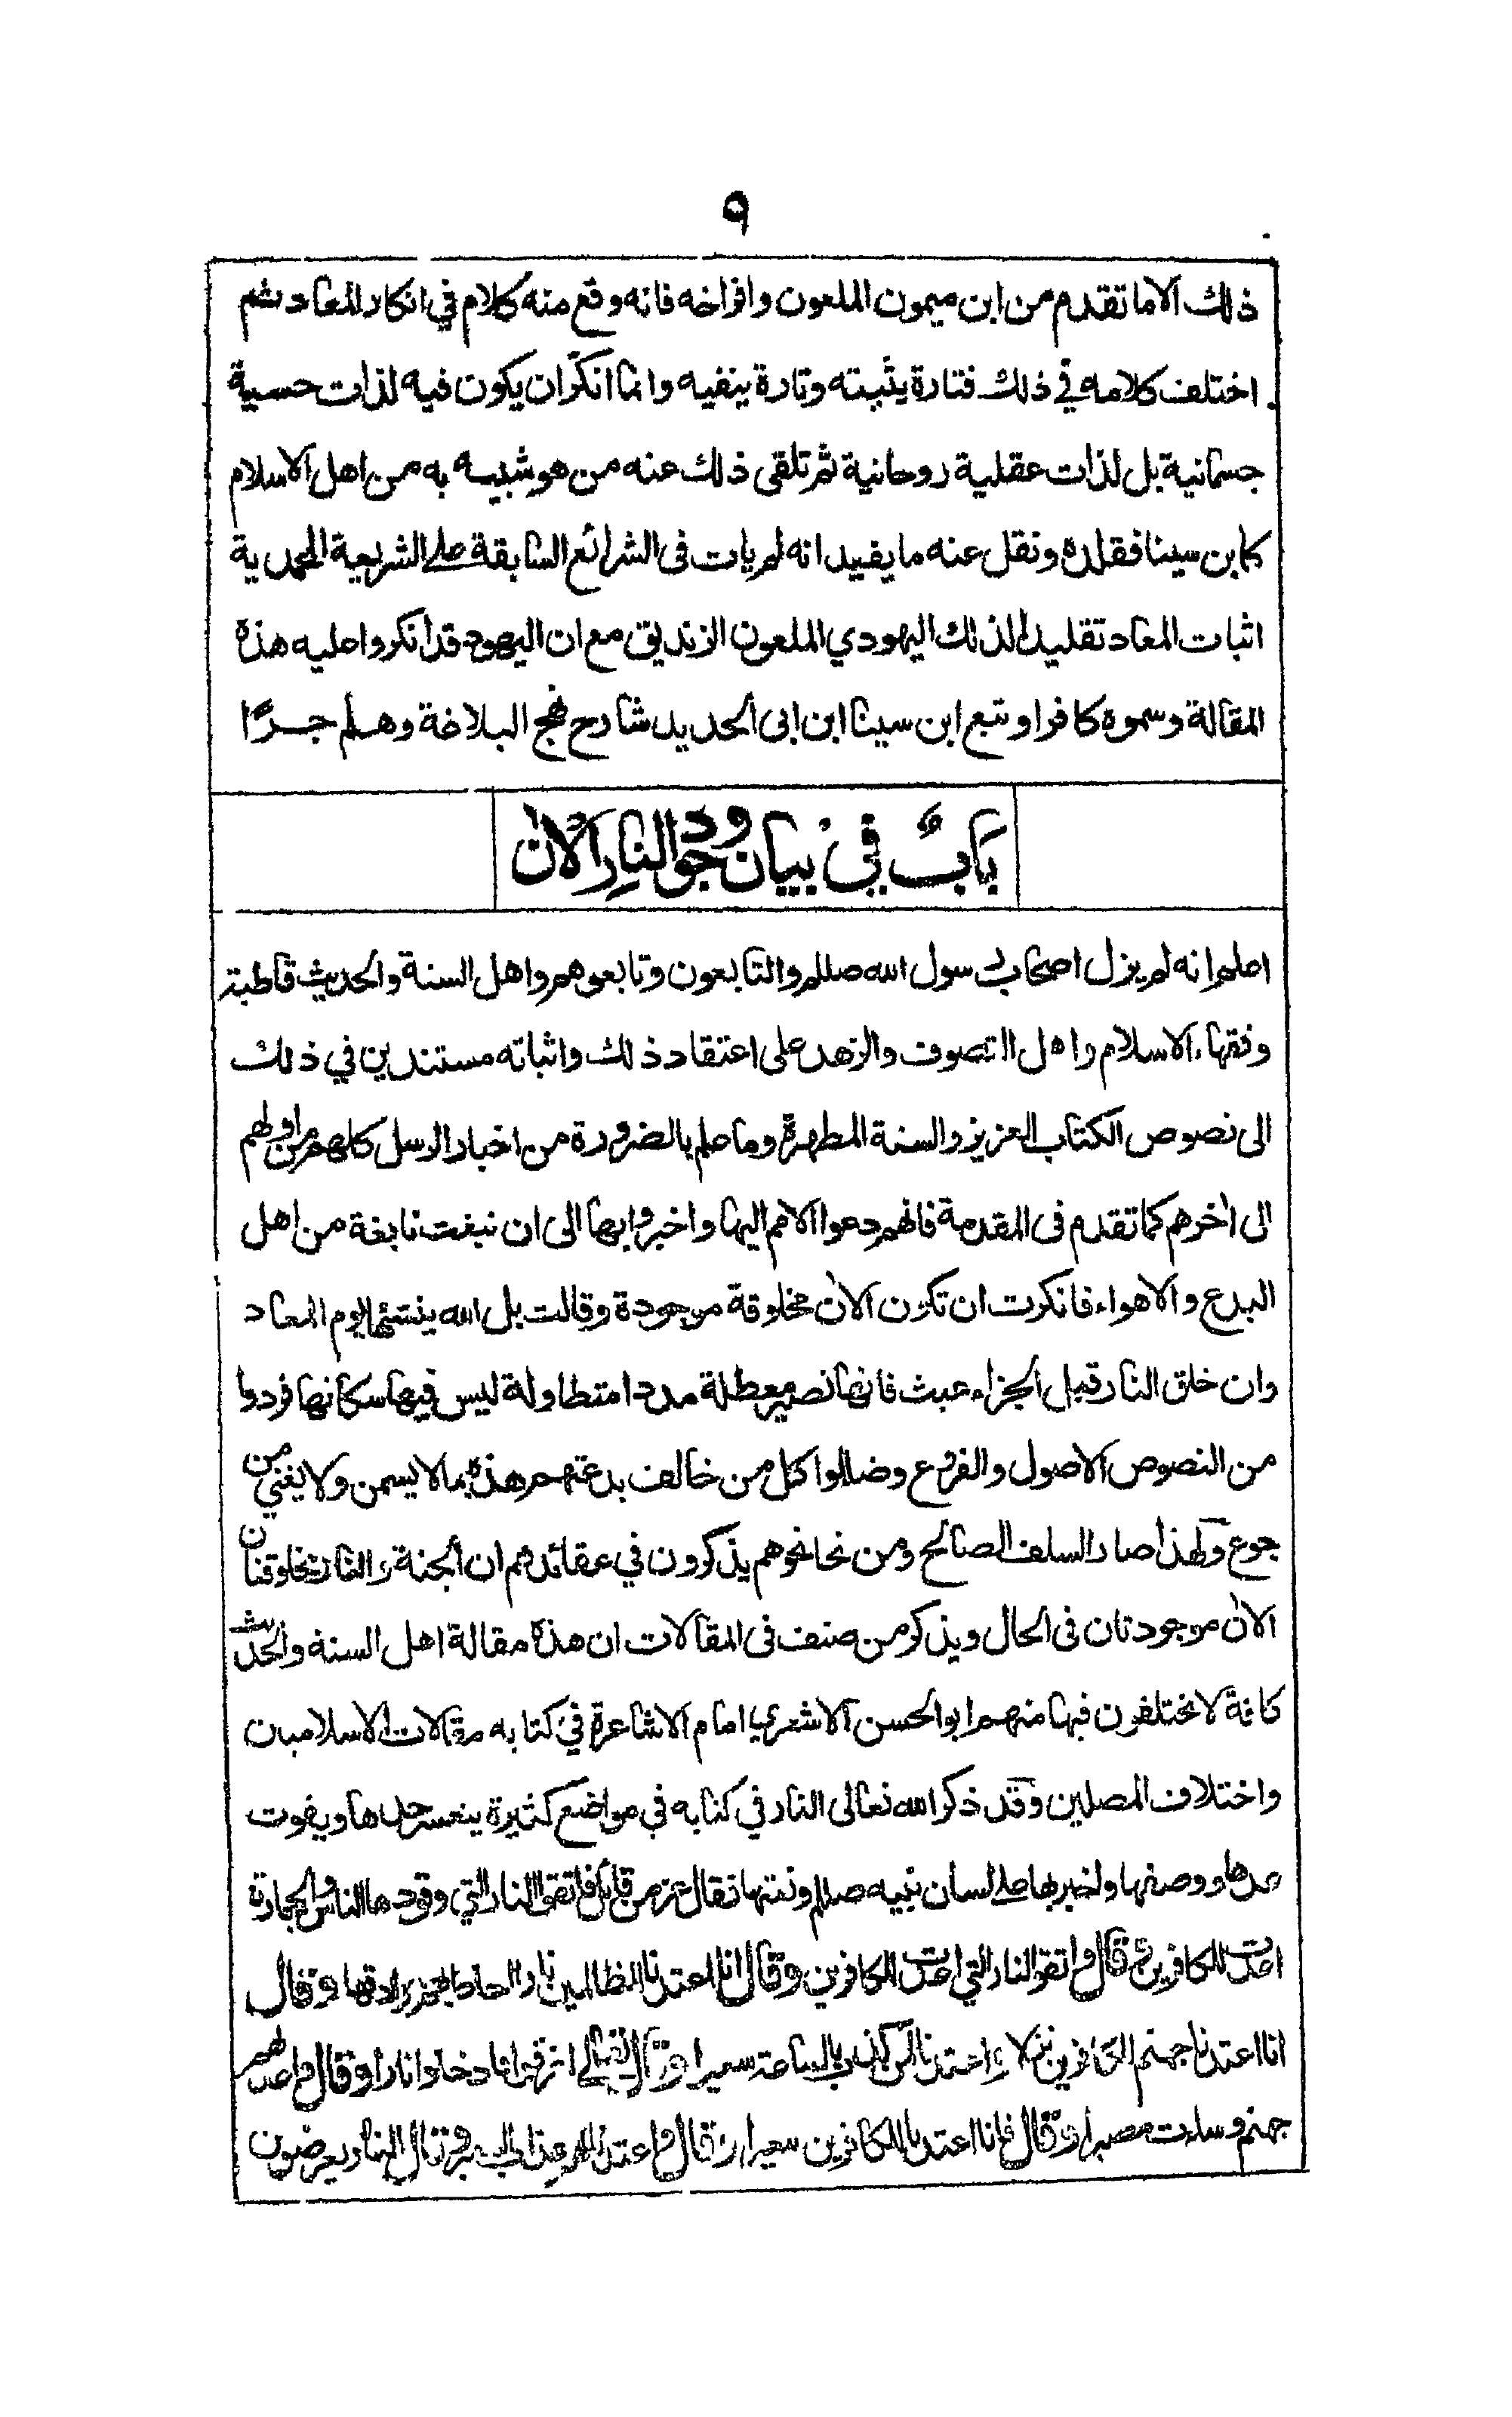 ٩
ذلك الا ما تقدم من ابن ميمون الملعون وافراخه فانه وقع منه كلام في انكار المعاد ثم
اختلف كلامه في ذلك فتارة يثبته وتارة ينفيه وانما انكر ان يكون فيه لذات حسية
جسمانية بل لذات عقلية روحانية ثم تلقى ذلك عنه من هو شبيه به من اهل الاسلام
كابن سينا فقلده ونقل عنه ما يفيد انه لم يات فى الشرائع السابقة على الشريعة المحمدية
اثبات المعاد تقليدا لذلك اليهودي الملعون الزنديق مع ان اليهود قد انكروا عليه هذه
المقالة وسموه كافرا وتبع ابن سينا ابن ابى الحديد شارح نهج البلاغة وهلم جرًا
باب في بيان وجود النار الآن
اعلم انه لم يزل اصحاب رسول الله صللم والتابعون وتابعوهم واهل السنة والحديث قاطبة
وفقهاء الاسلام واهل التصوف والزهد على اعتقاد ذلك واثباته مستندين في ذلك
الى نصوص الكتاب العزيز والسنة المطهرة وما علم بالضرورة من اخبار الرسل كلهم من اولهم
الى اخرهم كما تقدم فى المقدمة فانهم دعوا الامم اليها واخبروا بها الى ان نبغت نابغة من اهل
البدع والاهواء فانكرت ان تكون الآن مخلوقة موجودة وقالت بل الله ينشئها يوم المعاد
وان خلق النار قبل الجزاء عبث فانها تصير معطلة مددا متطاولة ليس فيها سكانها فردوا
من النصوص الاصول والفروع وضللوا كل من خالف بدعتهم هذه بما لا يسمن ولا يغني من
جوع ولهذا صار السلف الصالح ومن نحا نحوهم يذكرون في عقائدهم ان الجنة والنار مخلوقتان
الآن موجودتان فى الحال ويذكر من صنف فى المقالات ان هذه مقالة اهل السنة والحديث
كافة لا يختلفون فيها منهم ابو الحسن الاشعري امام الاشاعرة في كتابه مقالات الاسلاميين
واختلاف المصلين وقد ذكر الله تعالى النار في كتابه في مواضع كثيرة يتعسر حدها ويفوت
عدها ووصفها واخبر بها على لسان نبيه صللم ونعتها فقال عز من قائل فاتقوا النار التي وقودها الناس والحجارة
اعدت للكافرين وقال واتقوا النار التي اعدت للكافرين وقال انا اعتدنا للظالمين نارا احاط بهم سرادقها وقال
انا اعتدنا جهنم للكافرين نزلا واعتدنا لمن كذب بالساعة سعيرا وقال تعالى اغرقوا فادخلوا نارا وقال واعد لهم
جهنم وساءت مصيرا وقال فانا اعتدنا للكافرين سعيرا وقال واعتدنا لهم عذاب السعير وقال النار يعرضون